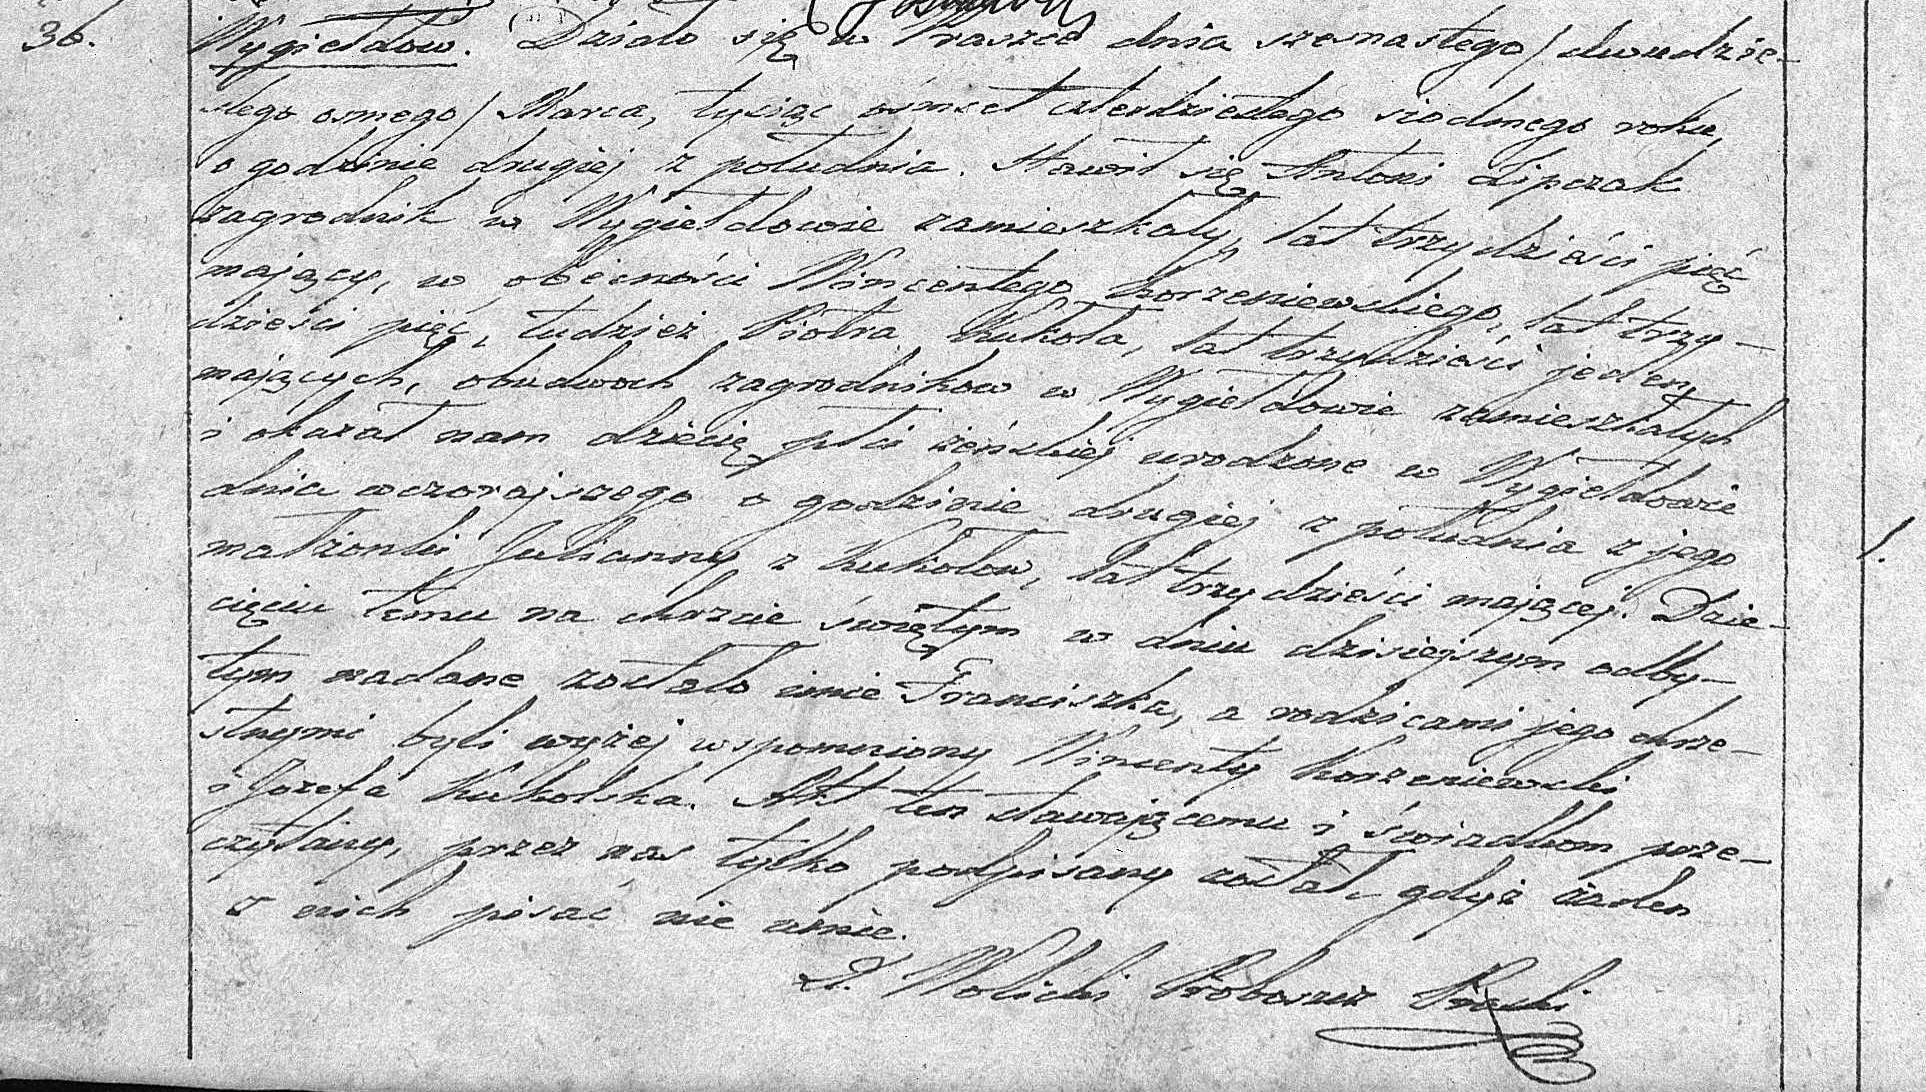 36.
Wygiełdow. Działo się w Praszce dnia szesnastego / dwudzie-
stego osmego / Marca, tysiąc ośmset czterdziestego siodmego roku,
o godzinie drugiej z południa. Stawił się Antoni Lipczak
zagrodnik w Wygiełdowie zamieszkały, lat trzydzieści pięć
mający, w obecności Wincentego Korzeniewskiego, lat trzy-
dzieści pięć, tudzież Piotra Kukoła, lat trzydzieści jeden
mających, obudwoch zagrodnikow w Wygiełdowie zamieszkałych
i okazał nam dziecię płci żeńskiej urodzone w Wygiełdowie
dnia wczorajszego o godzinie drugiej z południa z jego
małżonki Julianny z Kukołow, lat trzydzieści mającej. Dzie-
cięciu temu na chrzcie świętym w dniu dzisiejszym odby-
tym nadane zostało imie Franciszka, a rodzicami jego chrze-
stnymi byli wyżej wspomniony Wincenty Korzeniewski
i Jozefa Kukolska. Akt ten stawającemu i świadkom prze-
czytany, przez nas tylko podpisany został, gdyż żaden
z nich pisać nie umie.
X. Wolicki Proboszcz